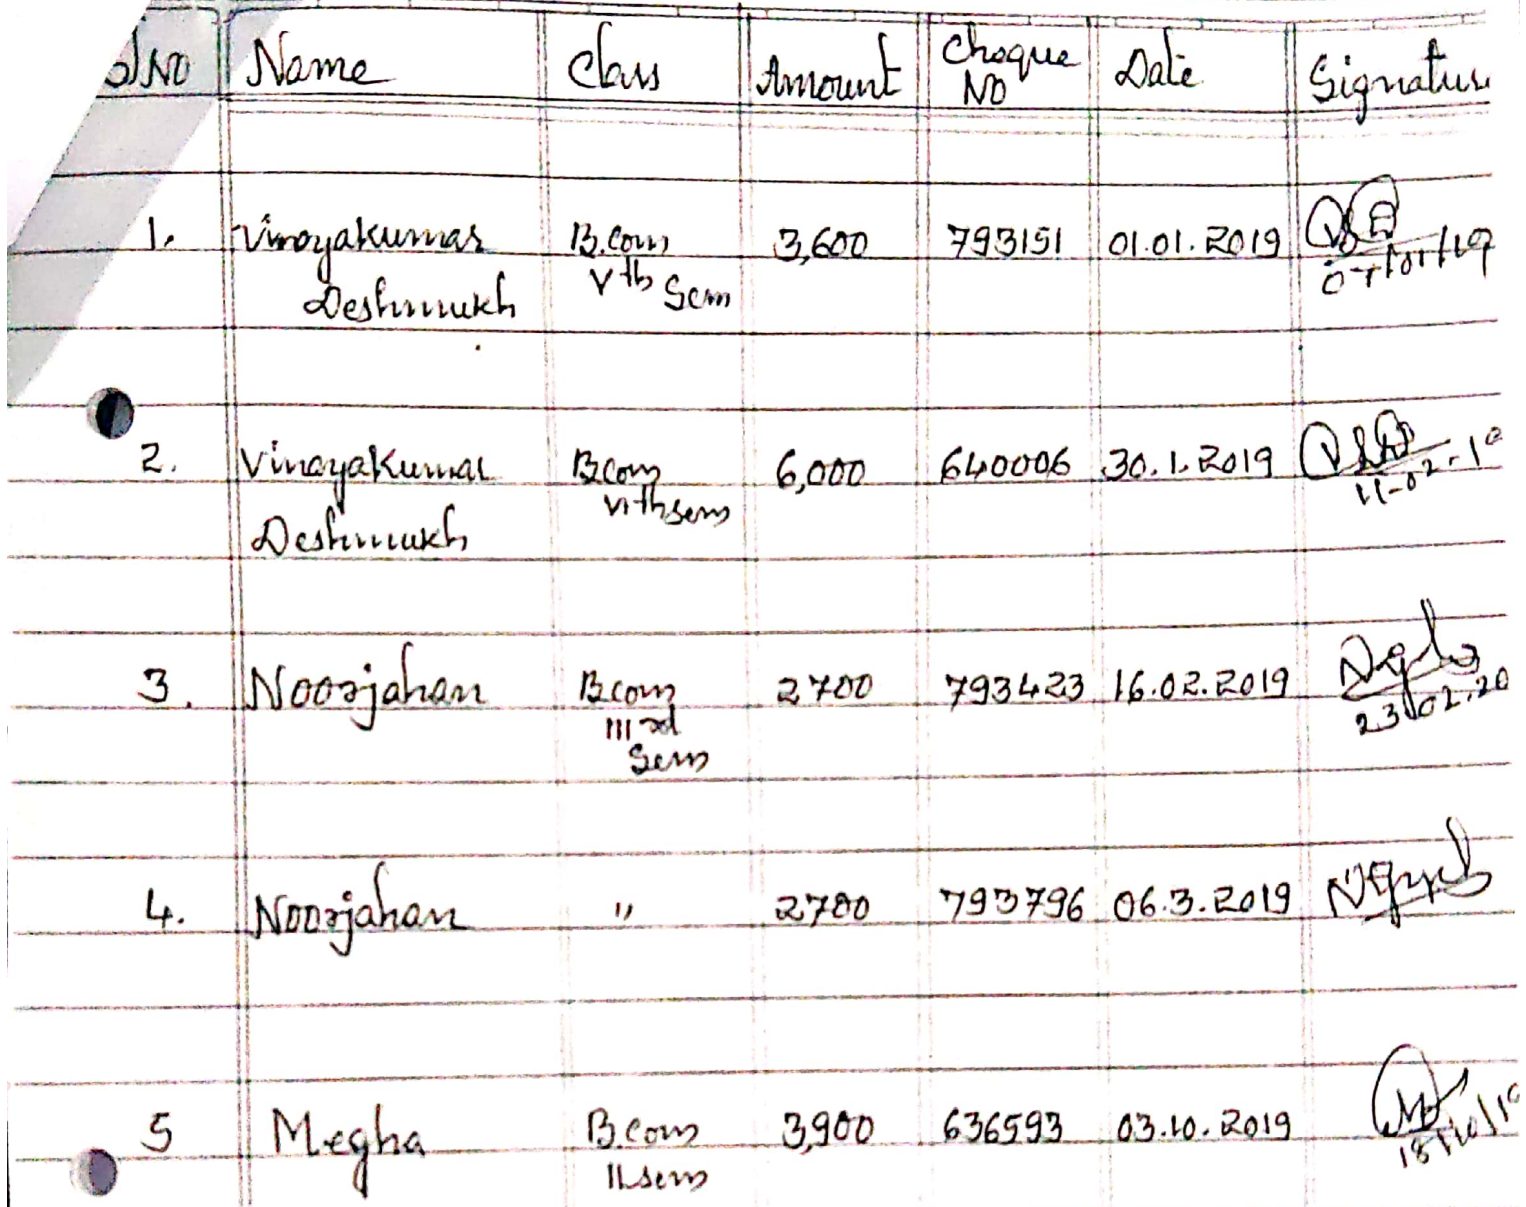 Sl NO Name Class Amount Cheque NO Date Signature
1. Vinayakumar Deshmukh B.com Vth Sem 3,600 793151 01.01.2019 07/01/19
2. Vinayakumar Deshmukh B.com VIth sem 6,000 640006 30.1.2019 11-02-19
3. Noorjahan B.com III rd Sem 2700 793423 16.02.2019 23.02.20
4. Noorjahan " 2700 793796 06.3.2019
5 Megha B.com II sem 3,900 636593 03.10.2019